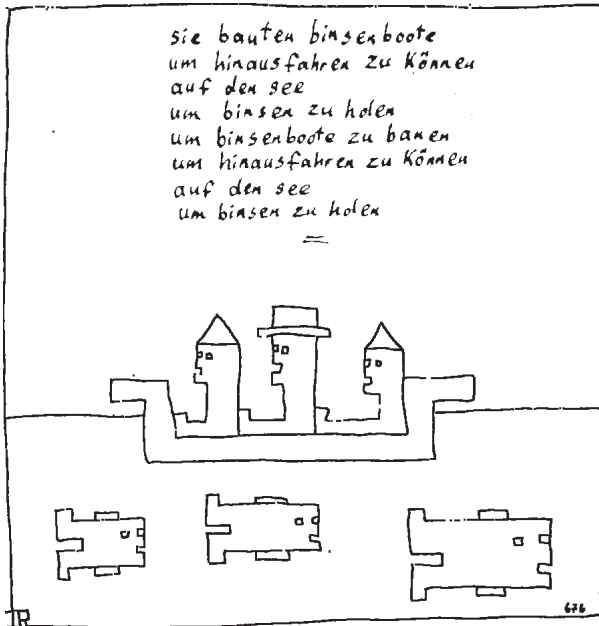 sie bauten binsenboote
um hinausfahren zu können
auf den see
um binsen zu holen
um binsenboote zu bauen
um hinausfahren zu können
auf den see
um binsen zu holen
TR
676